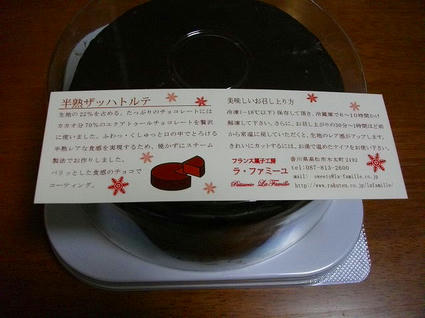 半熟ザッハトルテ
生地の22%を占める、たっぷりのチョコレートには
カカオ分70%のエクアトゥールチョコレートを贅沢
に使いました。ふわっ・くしゅっと口の中でとろける
半熟レアな食感を実現するため、焼かずにスチーム
製法でお作りしました。
パリッとした食感のチョコで
コーティング。
美味しいお召し上り方
冷凍(-18℃以下)保存して頂き、冷蔵庫で6~10時間かけ
解凍して下さい。さらに、お召し上がりの30分~1時間ほど前
から室温に戻していただくと、生地のレア感がアップします。
きれいにカットするには、お湯で温めたナイフをお使い下さい。
フランス菓子工房
ラ・ファミーユ
Pâtisserie La Famille
香川県高松市木太町2192
tel:087-813-2600
mail: sweets@la-famille.co.jp
http://www.rakuten.co.jp/lafamille/